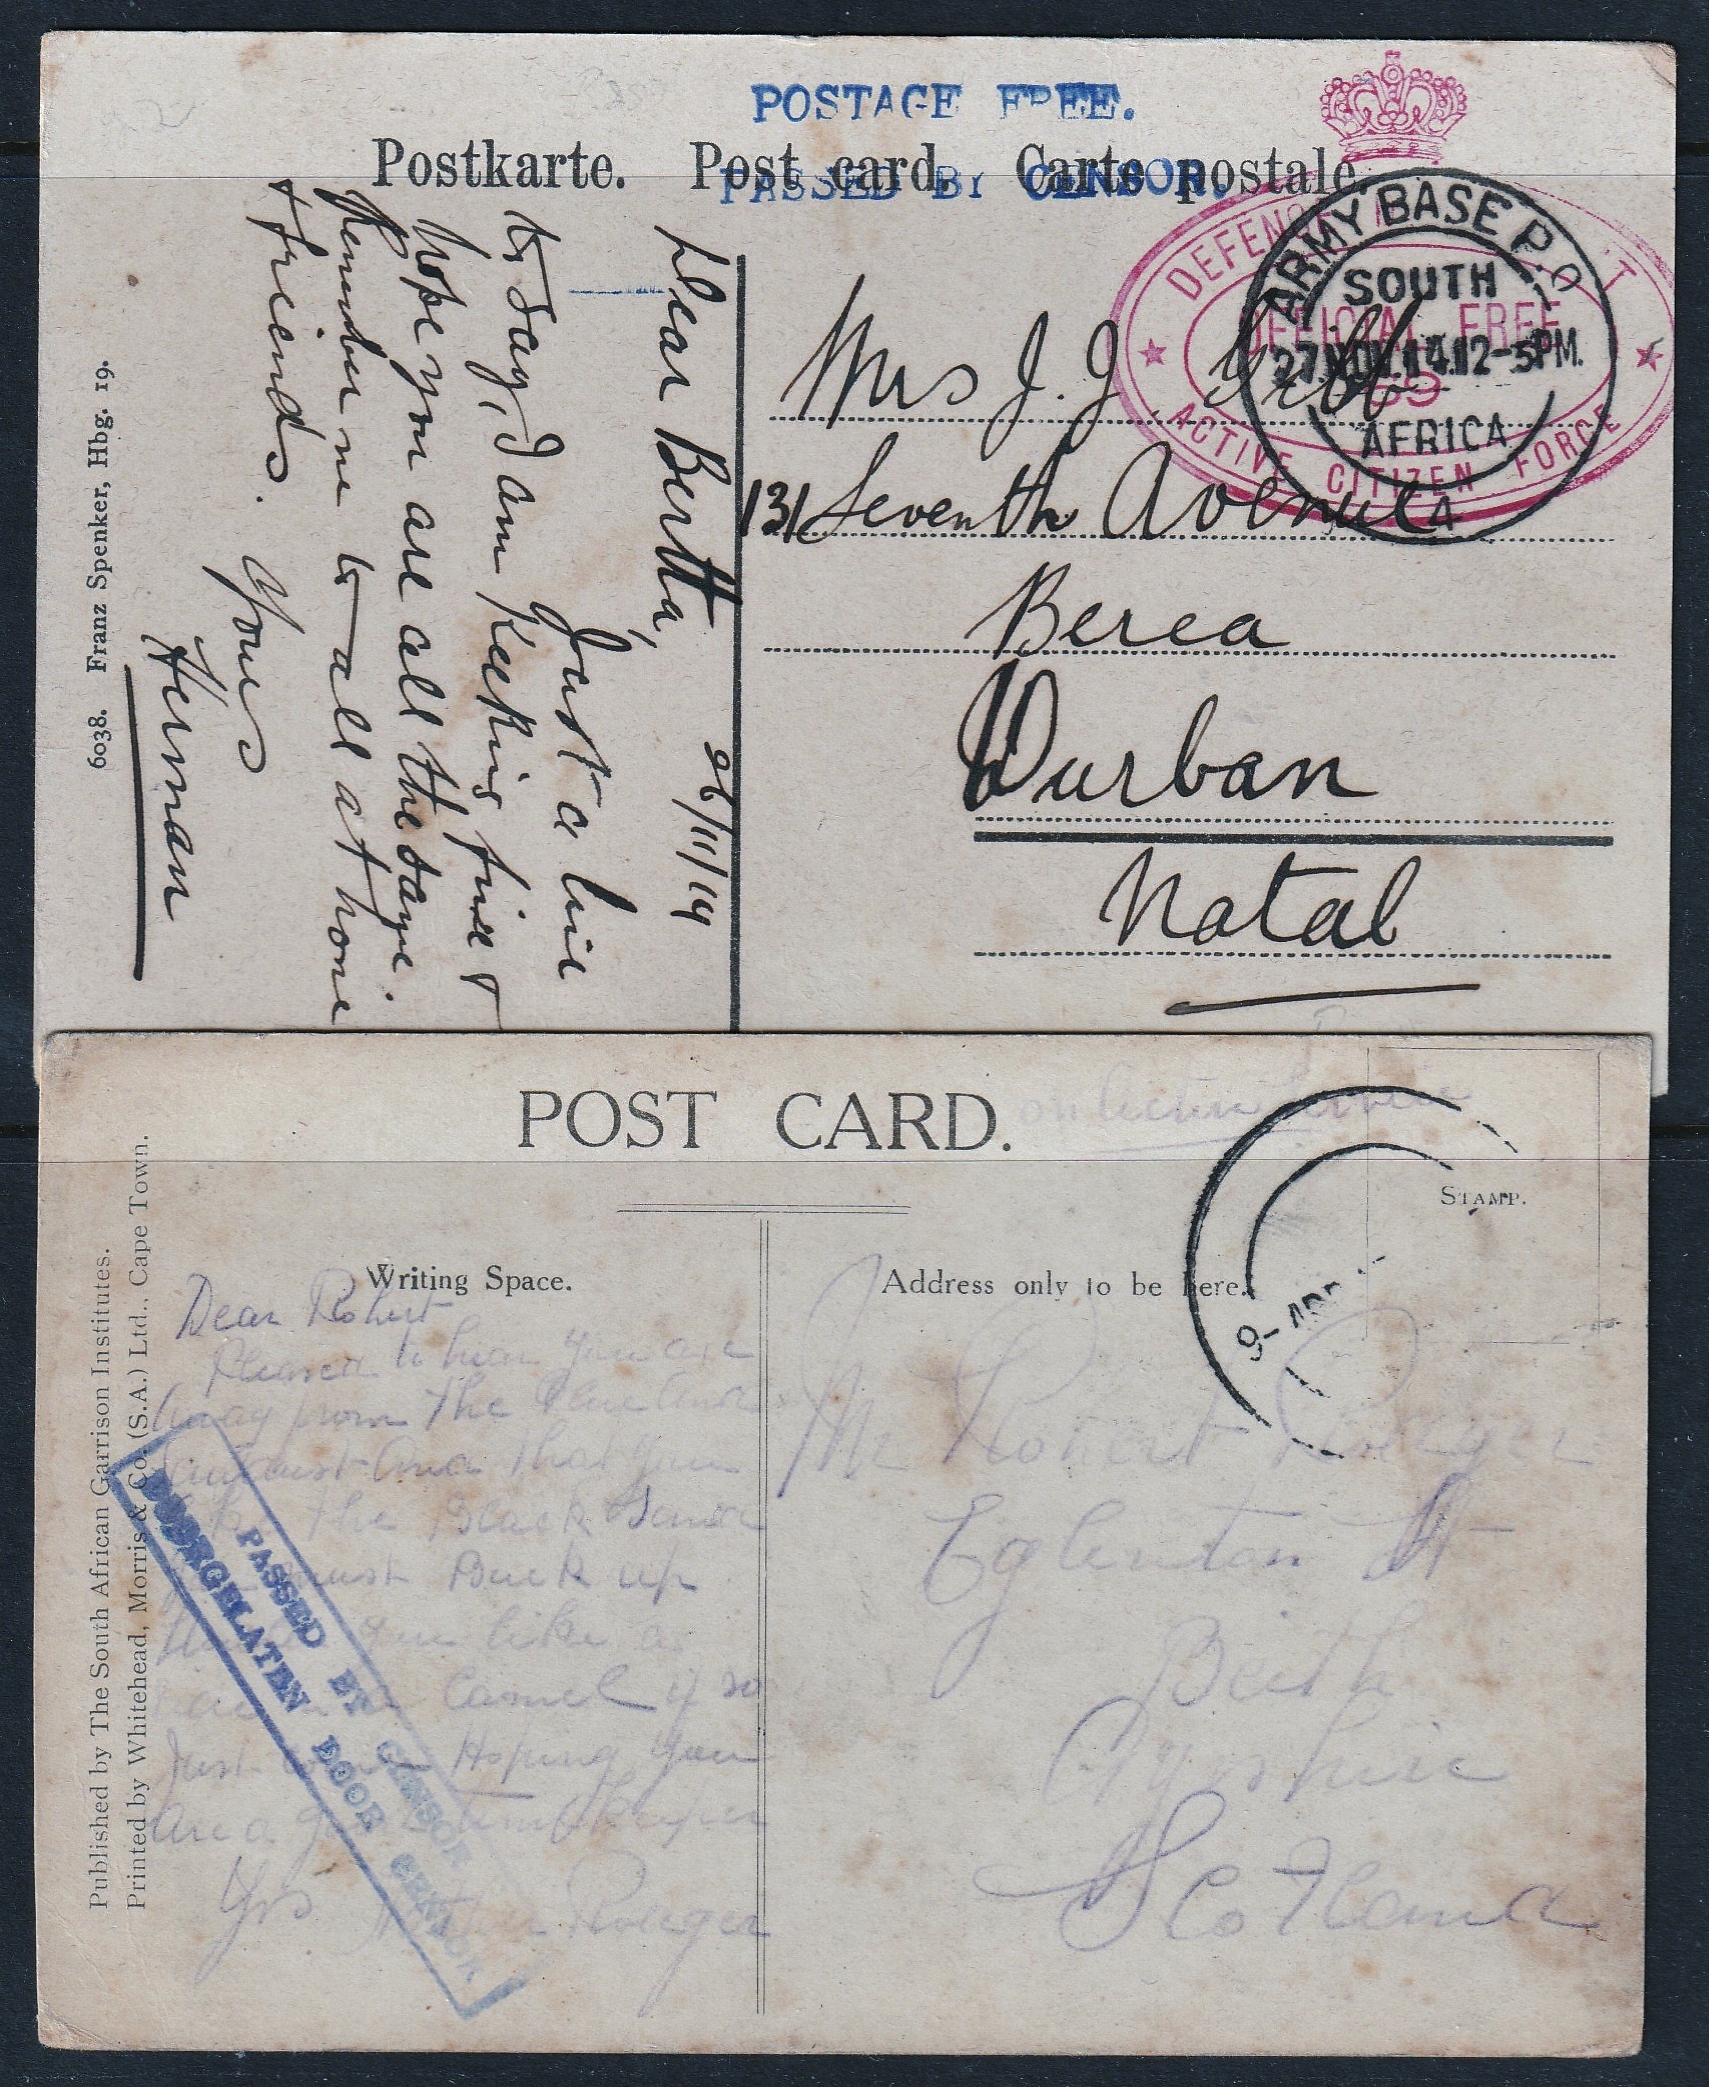 POSTAGE FREE.
Postkarte. Post card. Carte postale.
PASSED BY CENSOR.
DEFENCE
OFFICIAL FREE
ACTIVE CITIZEN FORCE
ARMY BASE P.O.
SOUTH
27.NOV.14.12-3PM.
AFRICA
4
Mrs J. J. Gibb
131 Seventh Avenue
Berea
Durban
Natal
26/11/14
Dear Bertha,
Just a line
to say, I am keeping fine &
hope you are all the same.
Remember me to all at home
& friends. Yours
Herman
6038. Franz Spenker, Hbg. 19.
POST CARD.
STAMP.
Writing Space.
Address only to be here.
9 APR
Dear Robert
Pleased to hear you are
away from the
and that you
the Black
must Buck up
you like a
a Camel if so
Just Hoping you
and
Yrs Roeger
Mr Robert Roeger
Eglinton St
Beith
Ayrshire
Scotland
PASSED BY CENSOR
DOORGELATEN DOOR CENSOR
Published by The South African Garrison Institutes.
Printed by Whitehead, Morris & Co. (S.A.) Ltd., Cape Town.